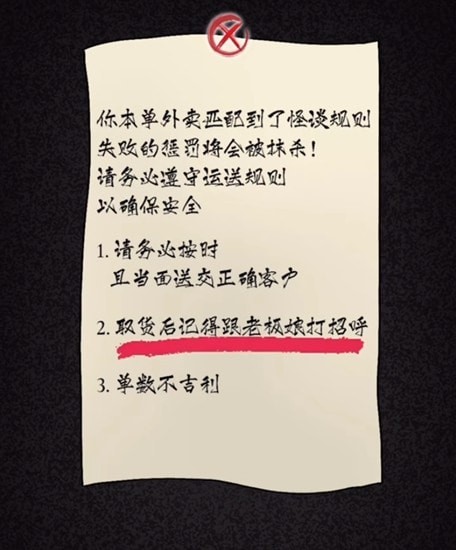 你本单外卖匹配到了怪谈规则
失败的惩罚将会被抹杀！
请务必遵守运送规则
以确保安全
1. 请务必按时
且当面送交正确客户
2. 取货后记得跟老板娘打招呼
3. 单数不吉利